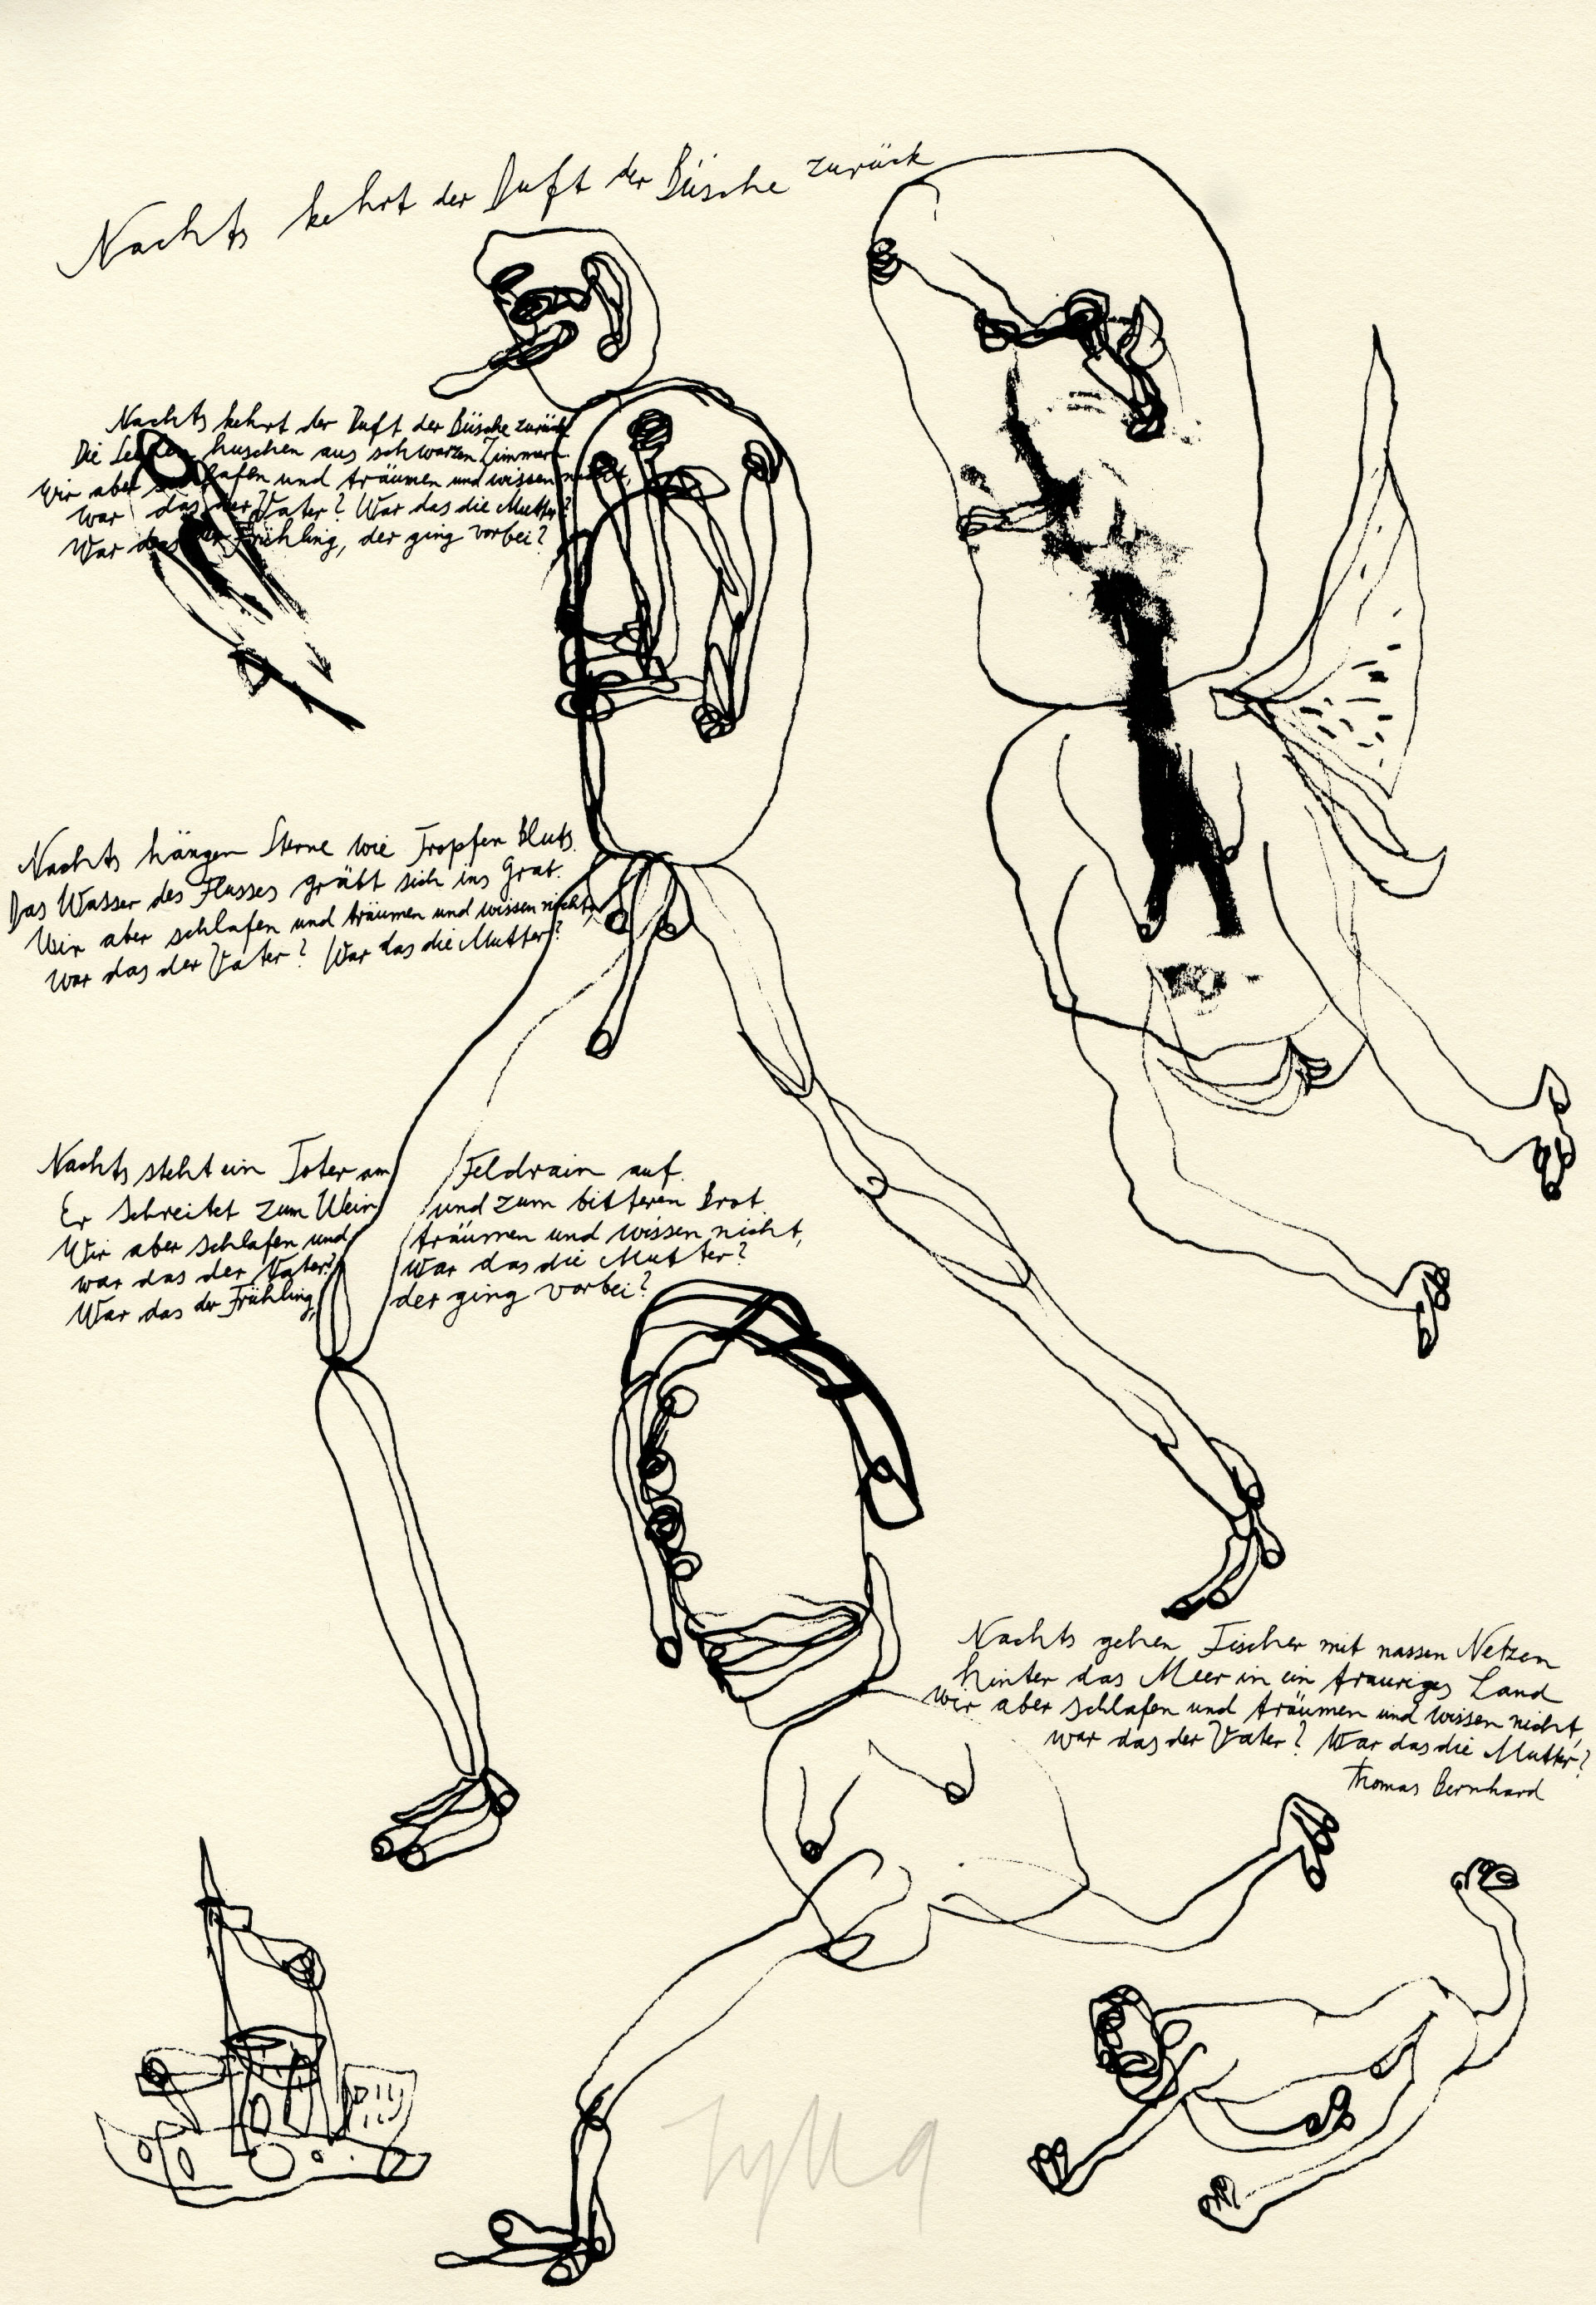 Nachts kehrt der Duft der Büsche zurück
Nachts kehrt der Duft der Büsche zurück
Die huschen aus schwarzen Zimmern.
Wir aber schlafen und träumen und wissen nicht,
war das der Vater? War das die Mutter?
War das der Frühling, der ging vorbei?
Nachts hängen Sterne wie Tropfen Bluts.
Das Wasser des Flusses gräbt sich ins Grat.
Wir aber schlafen und träumen und wissen nicht,
war das der Vater? War das die Mutter?
Nachts steht ein Toter am Feldrain auf.
Er schreitet zum Wein und zum bitteren Brot.
Wir aber schlafen und träumen und wissen nicht,
war das der Vater? War das die Mutter?
War das der Frühling, der ging vorbei?
Nachts gehen Fischer mit nassen Netzen
hinter das Meer in ein trauriges Land
wir aber schlafen und träumen und wissen nicht,
war das der Vater? War das die Mutter?
Thomas Bernhard